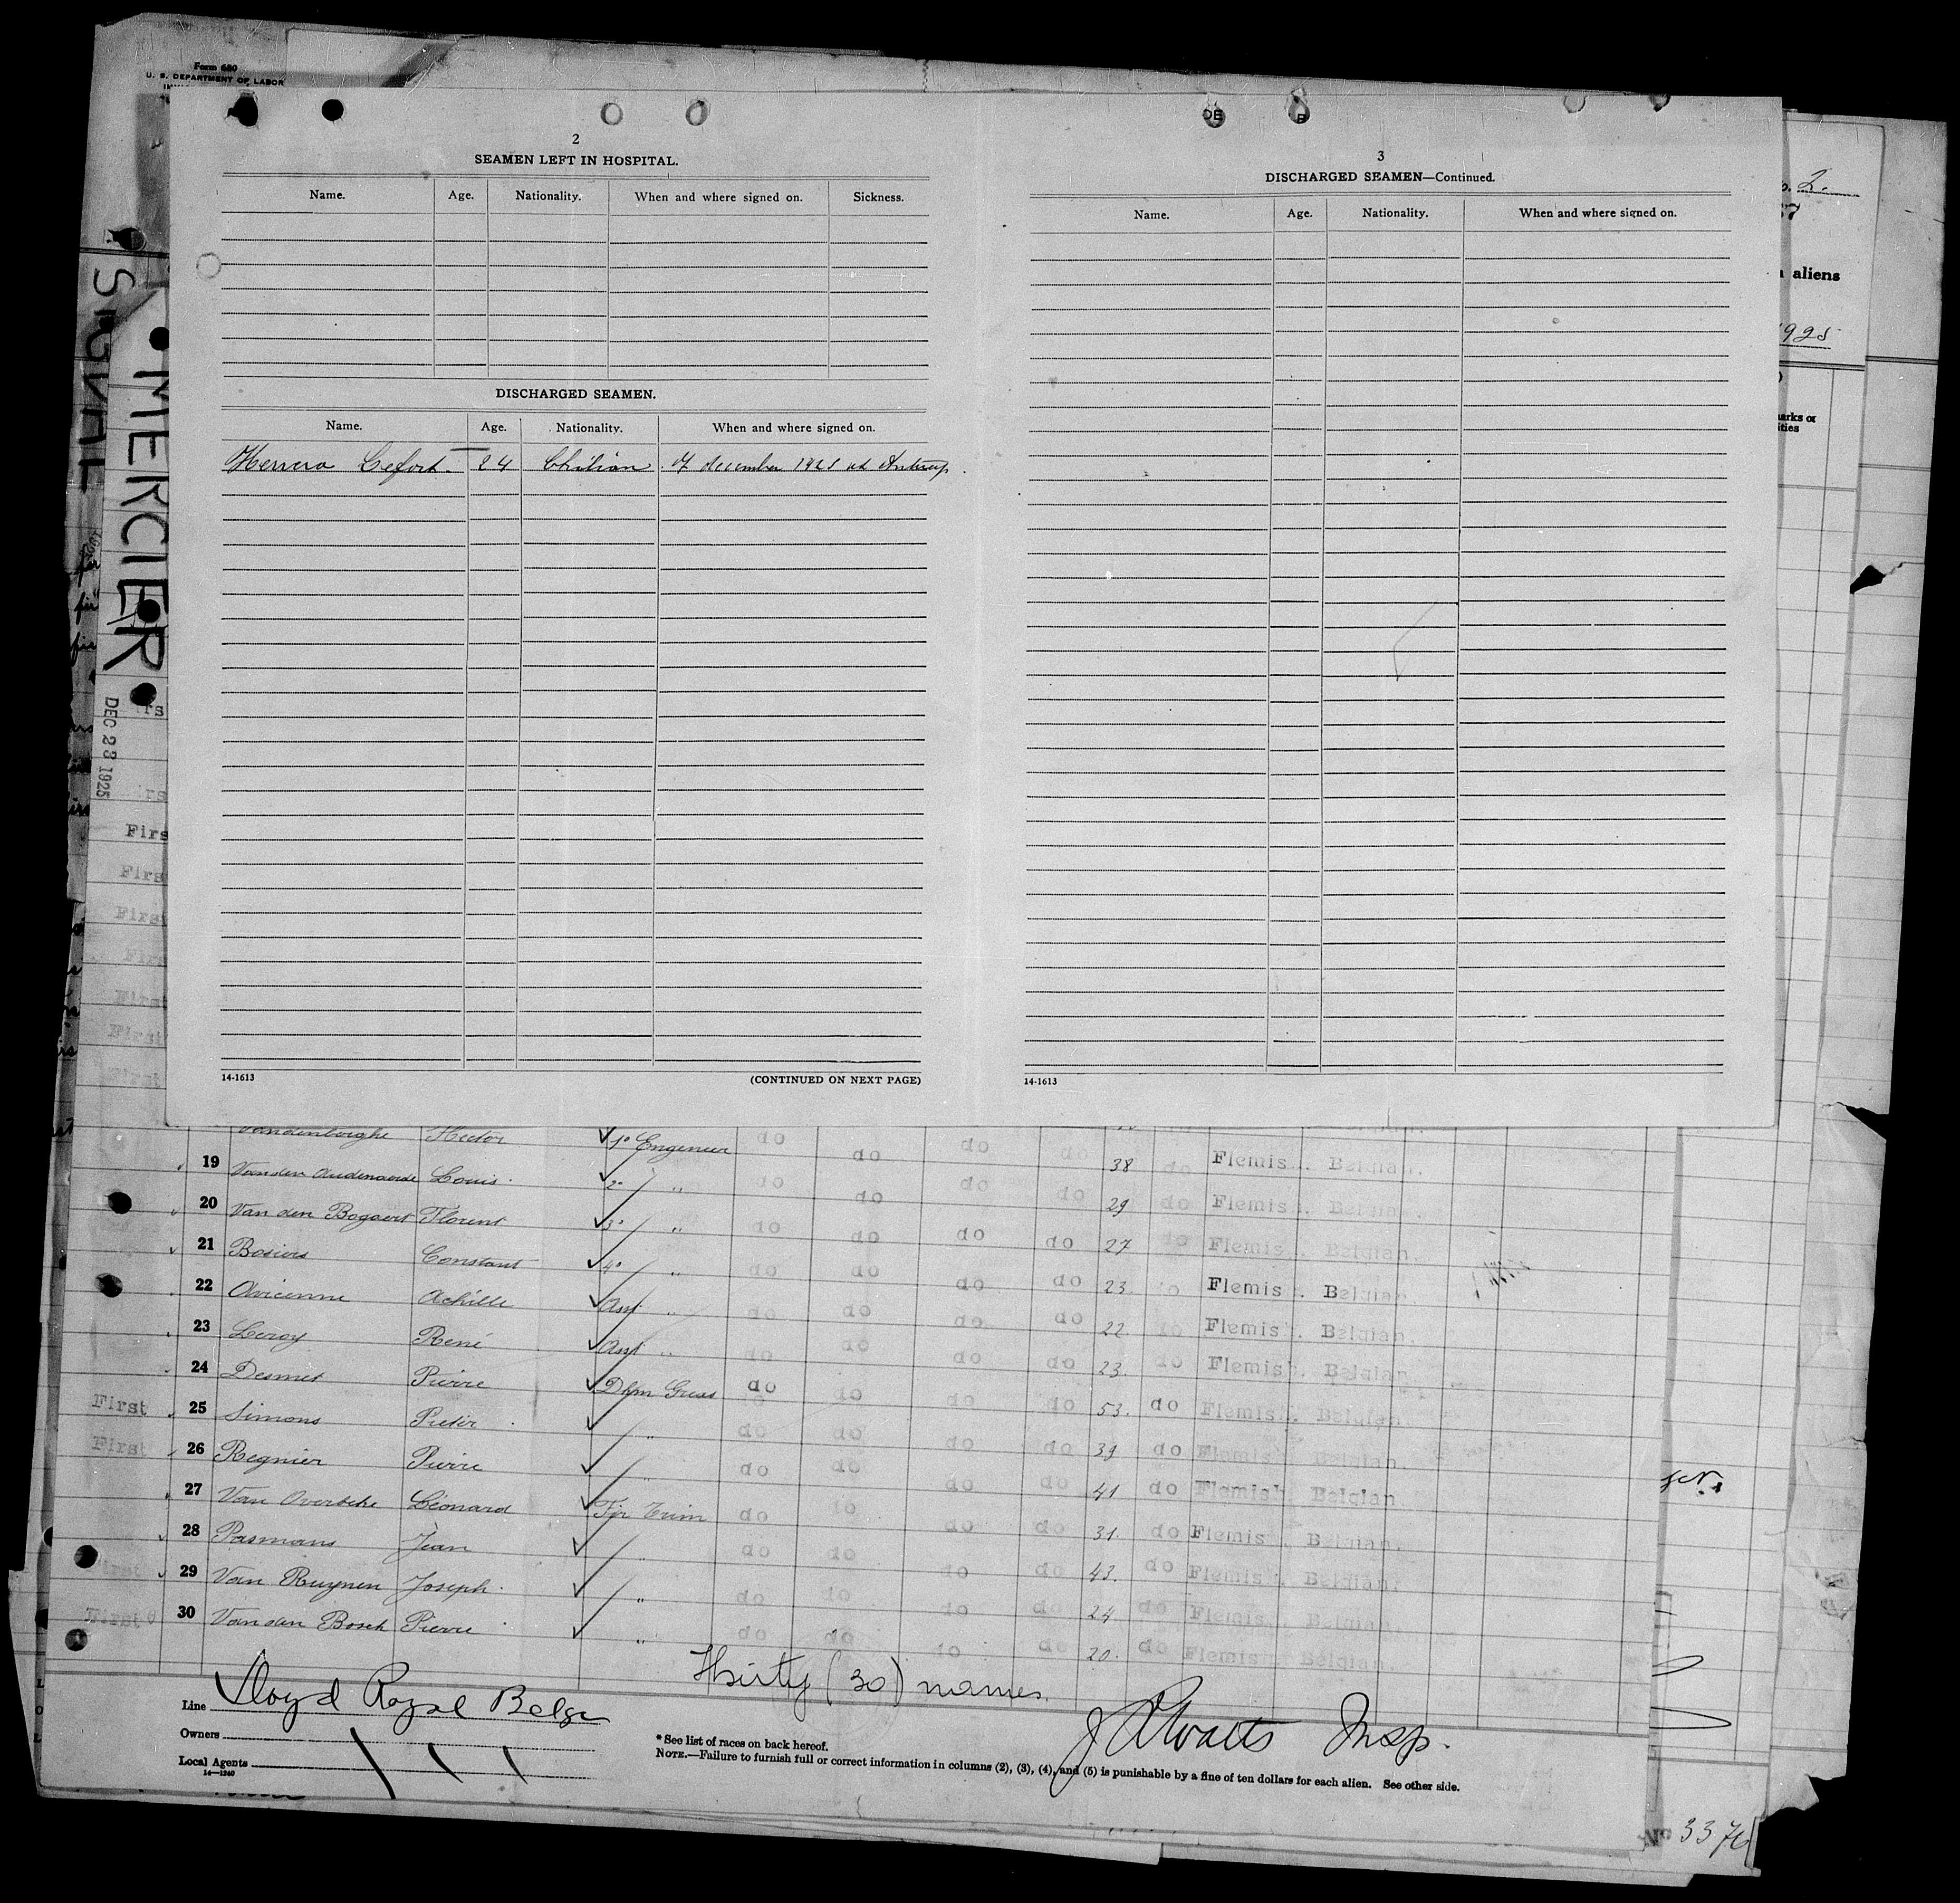 Form 680
U. S. DEPARTMENT OF LABOR
2
SEAMEN LEFT IN HOSPITAL.
Name. Age. Nationality. When and where signed on. Sickness.
DISCHARGED SEAMEN.
Name. Age. Nationality. When and where signed on.
Herrera Lefort. 24 Chilian. december 1925 at Antwerp.
14-1613 (CONTINUED ON NEXT PAGE)
3
DISCHARGED SEAMEN—Continued.
Name. Age. Nationality. When and where signed on.
14-1613
2.
aliens
1925
MERCIER
DEC 23 1925
First
First
First
First
First
First
Hector 1° Engeneer do do do do
19 Van den Oudenaerde Louis 2° " do do do do 38 do Flemish. Belgian.
20 Van den Bogaert Florent 3° " do do do do 29 do Flemish. Belgian.
21 Bosiers Constant 4° " do do do do 27 do Flemish. Belgian.
22 Avicenne Achille Asst " do do do do 23 do Flemish. Belgian
23 Leroy René Asst " do do do do 22 do Flemish. Belgian.
24 Desmet Pierre Dkm Greas do do do do 23. do Flemish. Belgian
First 25 Simons Pieter " do do do do 53. do Flemish. Belgian.
First 26 Regnier Pierre " do do do do 39 do Flemish. Belgian.
27 Van Overbeke Léonard Fir Trim do do do do 41 do Flemish Belgian
28 Pasmans Jean " do do do do 31. do Flemish. Belgian.
First 29 Van Ruymen Joseph. " do do do do 43. do Flemish. Belgian.
First 30 Van den Bosch Pierre " do do do do 24 do Flemish. Belgian.
20. do Flemish. Belgian
Thirty (30) names.
Line Lloyd Royal Belge
J A Watts Insp.
Owners
Local Agents
14—1240
* See list of races on back hereof.
NOTE.—Failure to furnish full or correct information in columns (2), (3), (4), and (5) is punishable by a fine of ten dollars for each alien. See other side.
No 3376